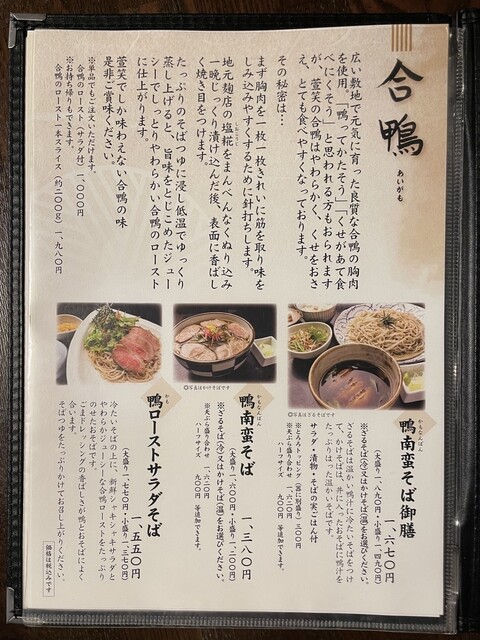 合鴨
あいがも
広い敷地で元気に育った良質な合鴨の胸肉
を使用。「鴨ってかたそう」「くせがあって食
べにくそう」と思われる方もおられます
が、萱笑の合鴨はやわらかく、くせをおさ
え、とても食べやすくなっております。
その秘密は…
まず胸肉を一枚一枚きれいに筋を取り味を
しみ込みやすくするために針打ちします。
地元麹店の塩糀をまんべんなくぬり込み
一晩じっくり漬け込んだ後、表面に香ばし
く焼き目をつけます。
たっぷりのそばつゆに浸し低温でゆっくり
蒸し上げると、旨味をとじこめたジュー
シーでしっとりやわらかい合鴨のロースト
に仕上がります。
萱笑でしか味わえない合鴨の味
是非ご賞味ください。
※単品でもご注文いただけます。
合鴨のロースト(サラダ付)一、〇〇〇円
※お持ち帰りもできます。
合鴨のロースト一本スライス(約二〇〇g)一、九八〇円
◎写真はざるそばです
かもなんばん
鴨南蛮そば御膳
一、六七〇円
(大盛り一、八九〇円・小盛り一、四九〇円)
※ざるそば(冷)又はかけそば(温)をお選びください。
ざるそばは温かい鴨汁に冷たいそばをつけ
て、かけそばは、丼に入ったおそばに鴨汁を
たっぷりはった温かいそばです。
サラダ・漬物・そばの実ごはん付
※とろろトッピング(器に別盛り)三〇〇円
※天ぷら盛り合わせ 一、六二〇円
ハーフサイズ 九〇〇円 等追加できます。
◎写真はかけそばです
かもなんばん
鴨南蛮そば
一、三八〇円
(大盛り一、六〇〇円・小盛り一、二〇〇円)
※ざるそば(冷)又はかけそば(温)をお選びください。
※天ぷら盛り合わせ 一、六二〇円
ハーフサイズ 九〇〇円 等追加できます。
かも
鴨ローストサラダそば
一、五五〇円
(大盛り一、七七〇円・小盛り一、三七〇円)
冷たいそばの上に、新鮮シャキシャキサラダと
やわらかジューシーな合鴨ローストをたっぷり
のせたおそばです。
ごまドレッシングの香ばしさが鴨とおそばによく
合います。
そばつゆをたっぷりかけてお召し上がりください。
価格は税込みです